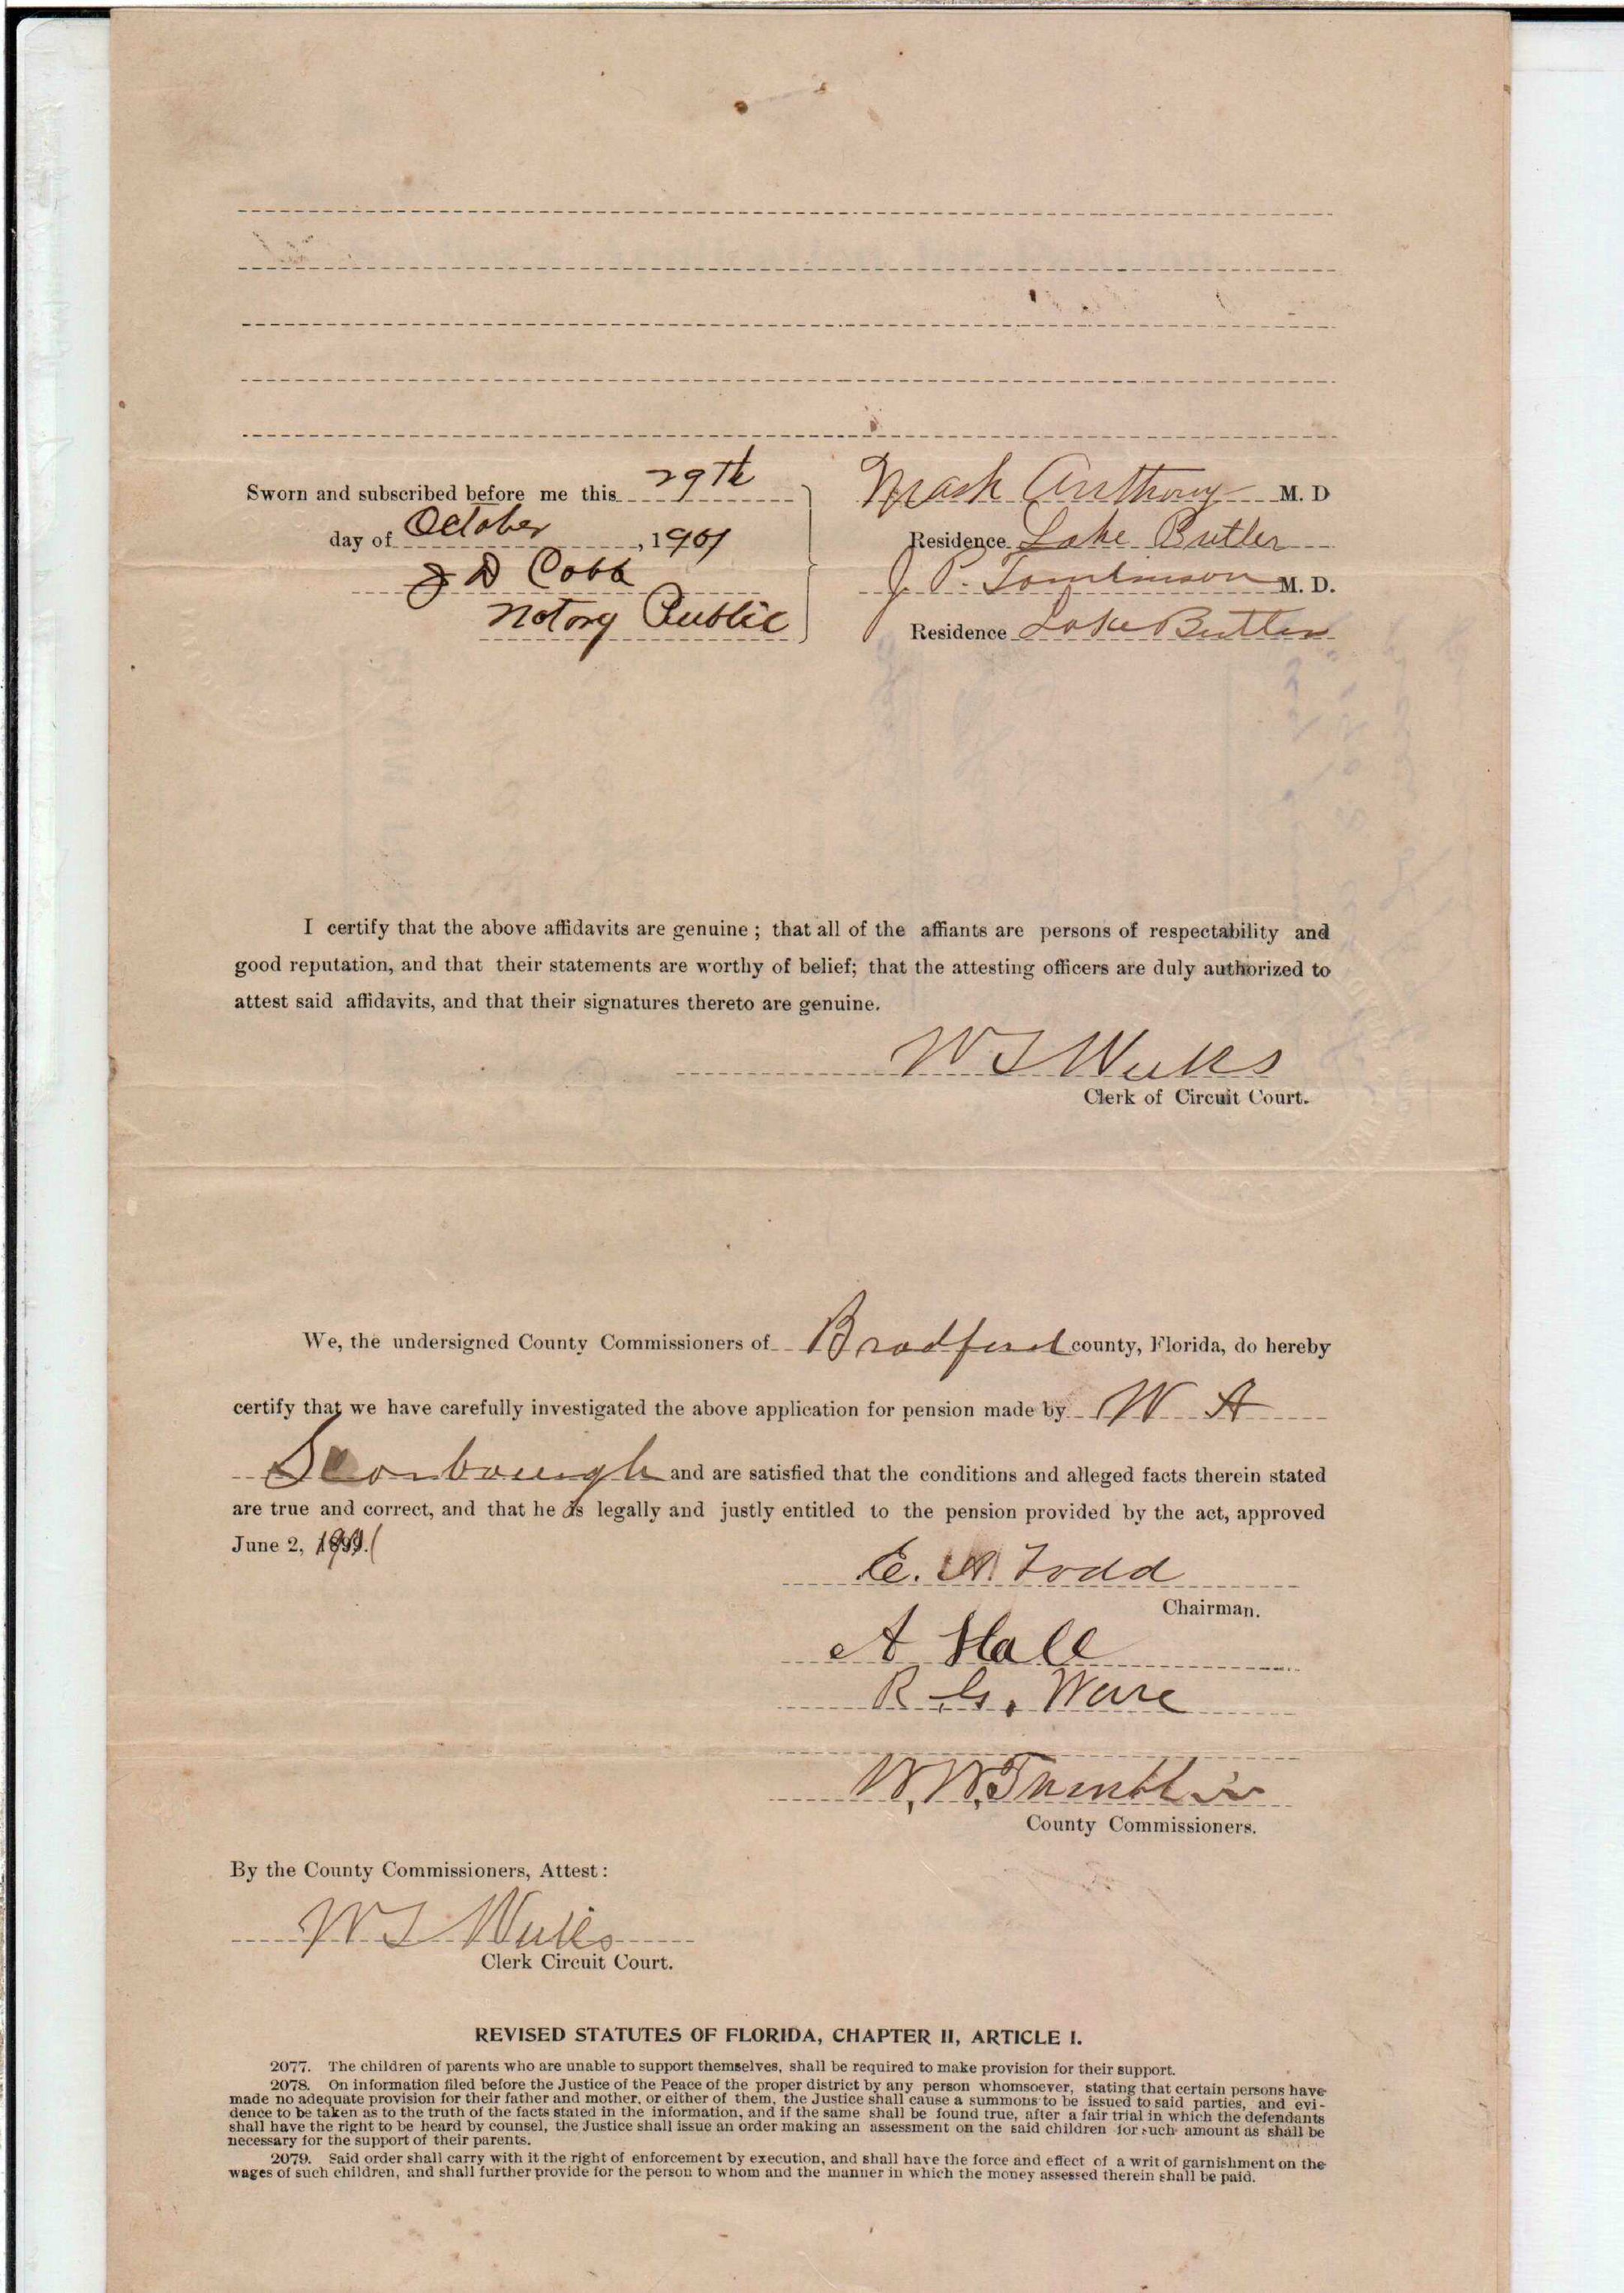 Sworn and subscribed before me this 29th
day of October, 1901
J D Cobb
Notary Public
Anthony M. D
Residence Lake Butler
J. P. Tomlinson M. D.
Residence Lake Butler
I certify that the above affidavits are genuine ; that all of the affiants are persons of respectability and
good reputation, and that their statements are worthy of belief; that the attesting officers are duly authorized to
attest said affidavits, and that their signatures thereto are genuine.
W S Weeks
Clerk of Circuit Court.
We, the undersigned County Commissioners of Bradford county, Florida, do hereby
certify that we have carefully investigated the above application for pension made by W A
Scarborough and are satisfied that the conditions and alleged facts therein stated
are true and correct, and that he is legally and justly entitled to the pension provided by the act, approved
June 2,
E. A. Todd
Chairman.
A Hall
R. G. Ware
W. W.
County Commissioners.
By the County Commissioners, Attest :
W S Weeks
Clerk Circuit Court.
REVISED STATUTES OF FLORIDA, CHAPTER II, ARTICLE I.
2077. The children of parents who are unable to support themselves, shall be required to make provision for their support.
2078. On information filed before the Justice of the Peace of the proper district by any person whomsoever, stating that certain persons have
made no adequate provision for their father and mother, or either of them, the Justice shall cause a summons to be issued to said parties, and evi-
dence to be taken as to the truth of the facts stated in the information, and if the same shall be found true, after a fair trial in which the defendants
shall have the right to be heard by counsel, the Justice shall issue an order making an assessment on the said children for such amount as shall be
necessary for the support of their parents.
2079. Said order shall carry with it the right of enforcement by execution, and shall have the force and effect of a writ of garnishment on the
wages of such children, and shall further provide for the person to whom and the manner in which the money assessed therein shall be paid.